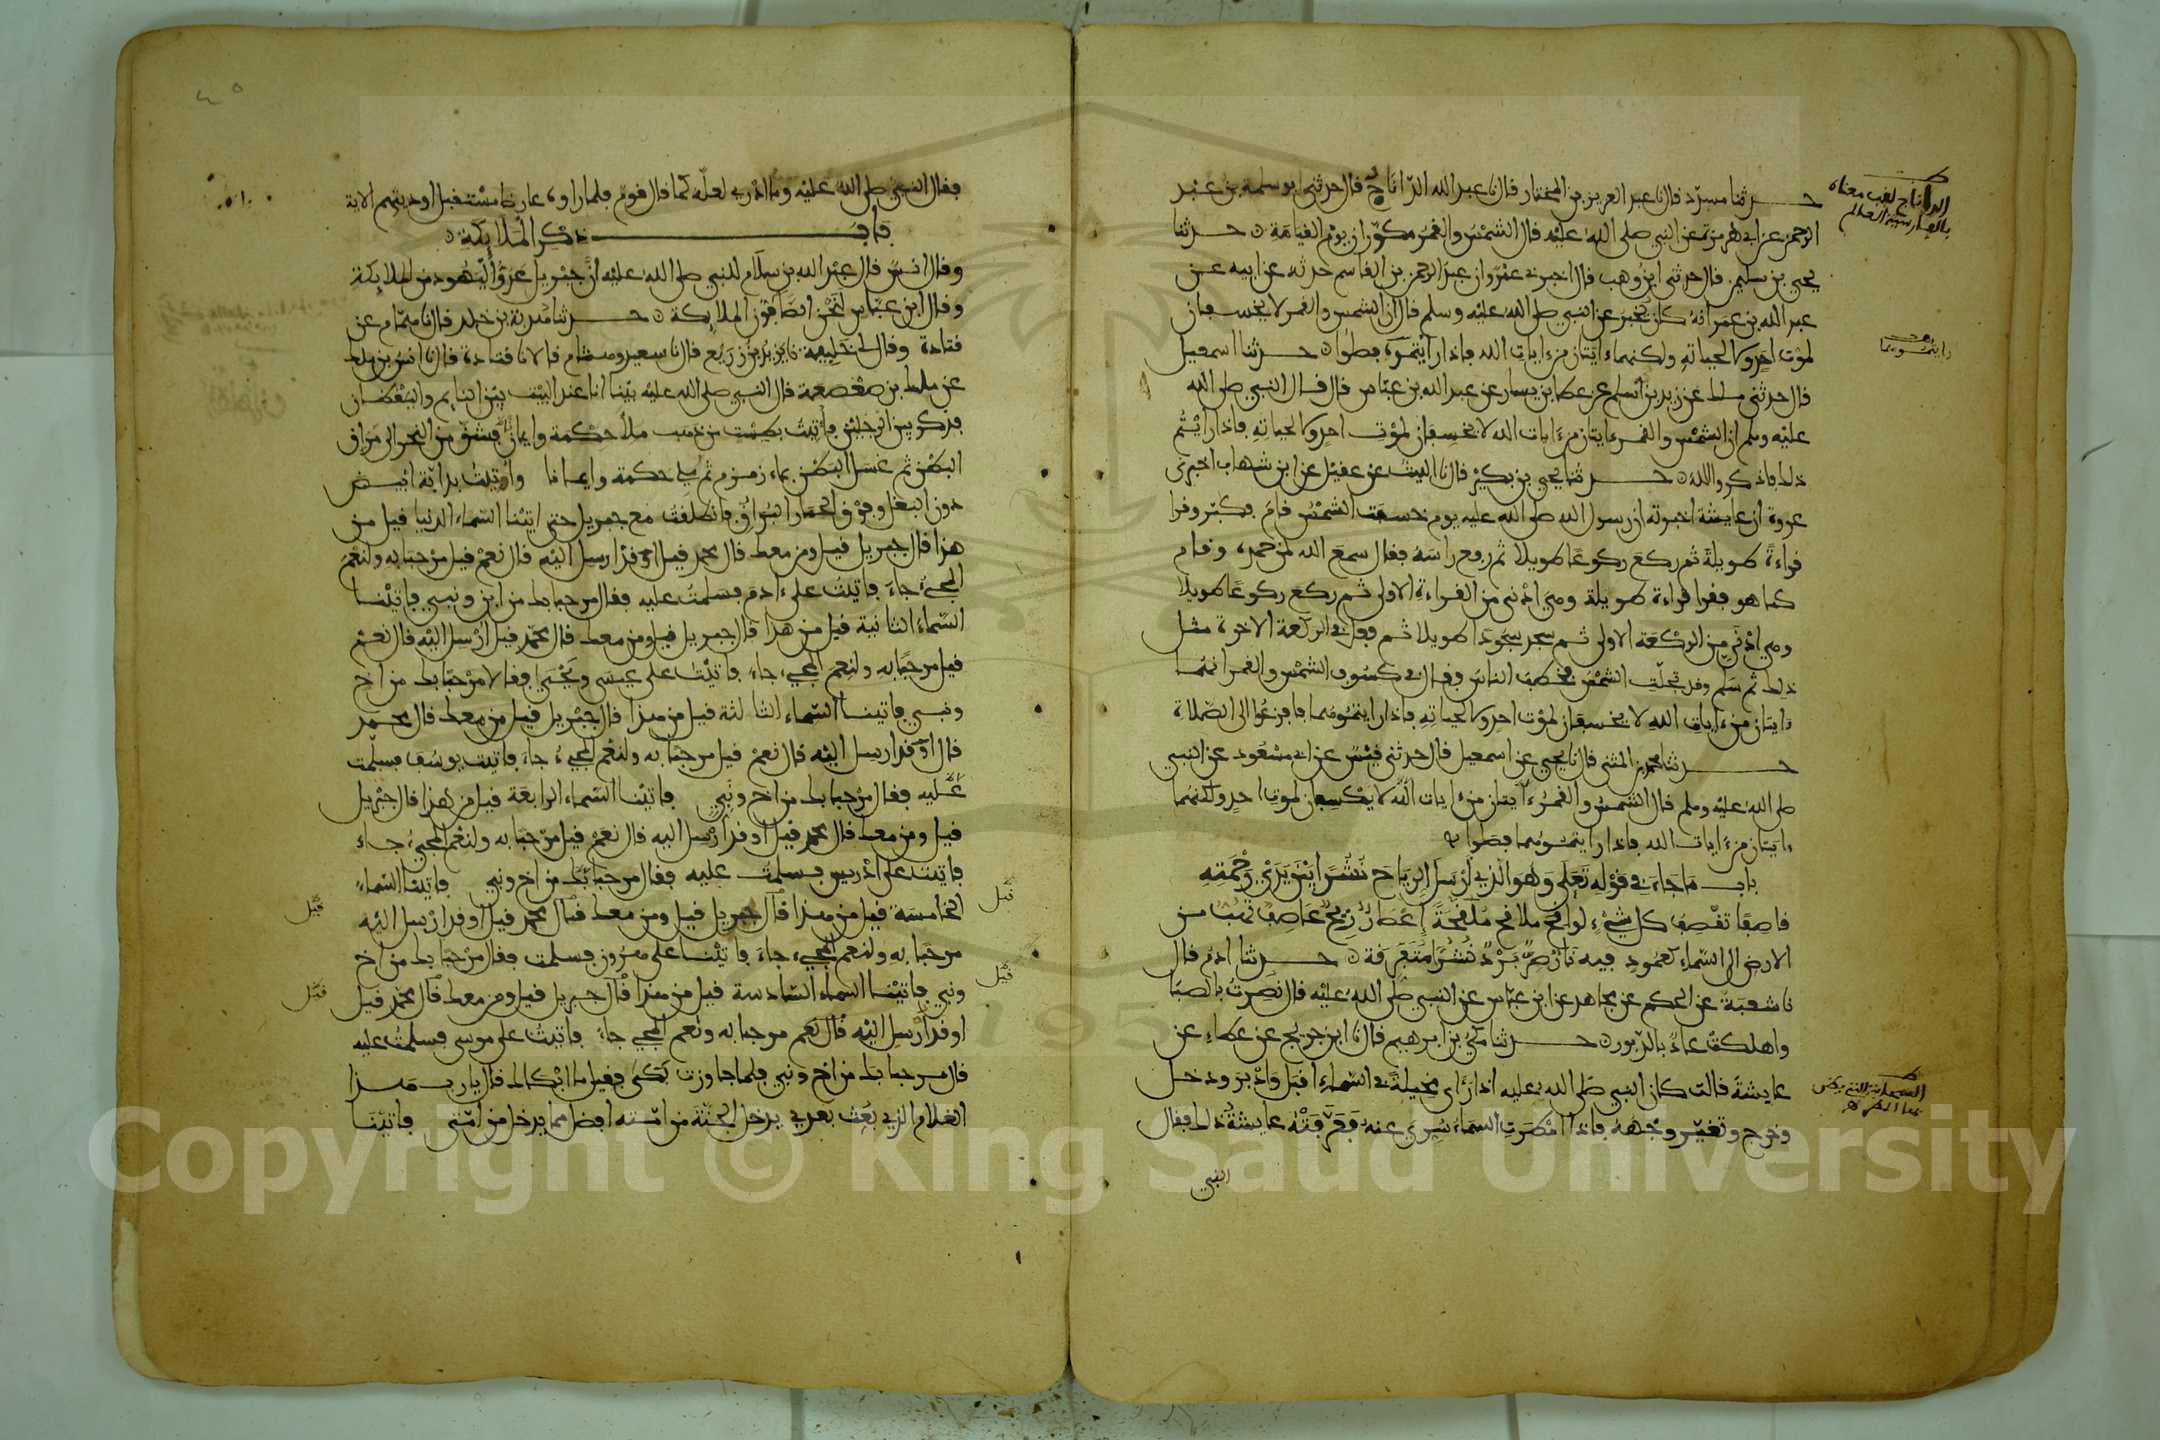 حدثنا مسدد قال نا عبد العزيز بن المختار قال نا عبد الله الداناج قال حدثني ابو سلمة بن عبد
الرحمن عن ابي هريرة عن النبي صلى الله عليه قال الشمس والقمر مكوران يوم القيامة حدثنا
يحيى بن سليمن قال حدثني ابن وهب قال اخبرني عمرو ان عبد الرحمن بن القاسم حدثه عن ابيه عن
عبد الله بن عمر انه كان يخبر عن النبي صلى الله عليه وسلم قال ان الشمس والقمر لا يخسفان
لموت احد ولا لحياته ولكنهما ءايتان من ءايات الله فاذا رايتموه فصلوا حدثنا اسمعيل
قال حدثني ملك عن زيد بن اسلم عن عطا بن يسار عن عبد الله بن عباس قال قال النبي صلى الله
عليه وسلم ان الشمس والقمر ءايتان من ءايات الله لا يخسفان لموت احد ولا لحياته فاذا رايتم
ذلك فاذكروا الله حدثنا يحيى بن بكير قال نا الليث عن عقيل عن ابن شهاب اخبرني
عروة ان عايشة اخبرته ان رسول الله صلى الله عليه يوم خسفت الشمس قام فكبر وقرا
قراءة طويلة ثم ركع ركوعا طويلا ثم رفع راسه فقال سمع الله لمن حمده وقام
كما هو فقرا قراءة طويلة وهي ادنى من القراءة الاولى ثم ركع ركوعا طويلا
وهي ادنى من الركعة الاولى ثم سجد سجودا طويلا ثم فعل في الركعة الاخرة مثل
ذلك ثم سلم وقد تجلت الشمس فخطب الناس فقال في كسوف الشمس والقمر انهما
ءايتان من ءايات الله لا يخسفان لموت احد ولا لحياته فاذا رايتموهما فافزعوا الى الصلاة
حدثنا محمد بن المثنى قال نا يحيى عن اسمعيل قال حدثني قيس عن ابي مسعود عن النبي
صلى الله عليه وسلم قال الشمس والقمر ءايتان من ءايات الله لا يكسفان لموت احد ولكنهما
ءايتان من ءايات الله فاذا رايتموهما فصلوا
باب ما جاء في قوله تعلى وهو الذي ارسل الرياح نشرا بين يدي رحمته
قاصفا تقصف كل شيء لواقح ملاقح ملقحة اعصار ريح عاصف تهب من
الارض الى السماء كعمود فيه نار صر برد نشرا متفرقة حدثنا ادم قال
نا شعبة عن الحكم عن مجاهد عن ابن عباس عن النبي صلى الله عليه قال نصرت بالصبا
واهلكت عاد بالدبور حدثنا مكي بن ابرهيم قال نا ابن جريج عن عطاء عن
عايشة قالت كان النبي صلى الله عليه اذا راى مخيلة في السماء اقبل وادبر ودخل
وخرج وتغير وجهه فاذا امطرت السماء سري عنه فعرفته عايشة ذلك فقال
النبي
الداناج لقب معناه
بالفارسية العالم
رايتموهما
فقال النبي صلى الله عليه وما ادري لعله كما قال قوم فلما راوه عارضا مستقبل اوديتهم الاية
باب ذكر الملايكة
وقال انس قال عبد الله بن سلام للنبي صلى الله عليه ان جبريل عدو اليهود من الملايكة
وقال ابن عباس لنحن الصافون الملايكة حدثنا هدبة بن خلد قال نا همام عن
قتادة وقال لي خليفة نا يزيد بن زريع قال نا سعيد وهشام قالا نا قتادة قال نا انس بن ملك
عن ملك بن صعصعة قال النبي صلى الله عليه بينا انا عند البيت بين النايم واليقظان
فذكر بين الرجلين فاتيت بطست من ذهب ملأ حكمة وايمانا فشق من النحر الى مراق
البطن ثم غسل البطن بماء زمزم ثم ملي حكمة وايمانا واوتيت بدابة ابيض
دون البغل وفوق الحمار البراق فانطلقت مع جبريل حتى اتينا السماء الدنيا قيل من
هذا قال جبريل قيل ومن معك قال محمد قيل اوقد ارسل اليه قال نعم قيل مرحبا به ولنعم
المجيء جاء فاتيت على ءادم فسلمت عليه فقال مرحبا بك من ابن ونبي فاتينا
السماء الثانية قيل من هذا قال جبريل قيل ومن معك قال محمد قيل ارسل اليه قال نعم
قيل مرحبا به ولنعم المجيء جاء فاتيت على عيسى ويحيى فقالا مرحبا بك من اخ
ونبي فاتينا السماء الثالثة قيل من هذا قال جبريل قيل من معك قال محمد
قال اوقد ارسل اليه قال نعم قيل مرحبا به ولنعم المجيء جاء فاتيت يوسف فسلمت
عليه فقال مرحبا بك من اخ ونبي فاتينا السماء الرابعة قيل من هذا قال جبريل
قيل ومن معك قال محمد قيل اوقد ارسل اليه قال نعم قيل مرحبا به ولنعم المجيء جاء
فاتيت على ادريس فسلمت عليه فقال مرحبا بك من اخ ونبي فاتينا السماء
الخامسة قيل من هذا قال جبريل قيل ومن معك قال محمد قيل اوقد ارسل اليه
مرحبا به ولنعم المجيء جاء فاتينا على هرون فسلمت فقال مرحبا بك من اخ
ونبي فاتينا السماء السادسة قيل من هذا قال جبريل قيل ومن معك قال محمد قيل
اوقد ارسل اليه قال نعم مرحبا به ونعم المجيء جاء فاتيت على موسى فسلمت عليه
قال مرحبا بك من اخ ونبي فلما جاوزت بكى فقيل ما ابكاك قال يارب هذا
الغلام الذي بعث بعدي يدخل الجنة من امته افضل مما يدخل من امتي فاتينا
قيل
قيل
قيل
قيل
Copyright © King Saud University